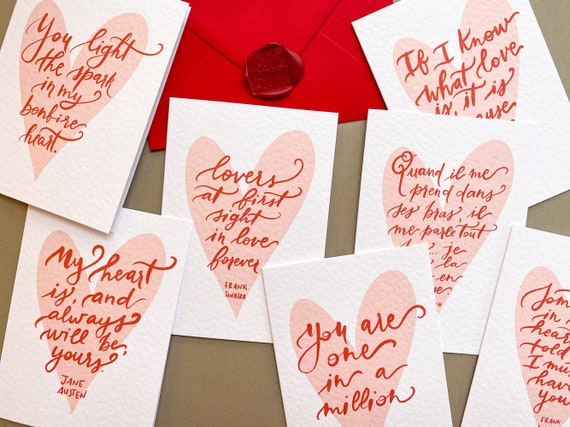 You light
the spark
in my
bonfire
heart.
If I Know
what love
is, it is
lovers
at first
sight
in love
forever
FRANK
SINATRA
Quand il me
prend dans
ses bras, il
me parle tout
je
la
en
My heart
is, and
always
will be,
yours.
JANE
AUSTEN
You are
one
in a
million
in
hear
told
I mu
have
you
FRANK